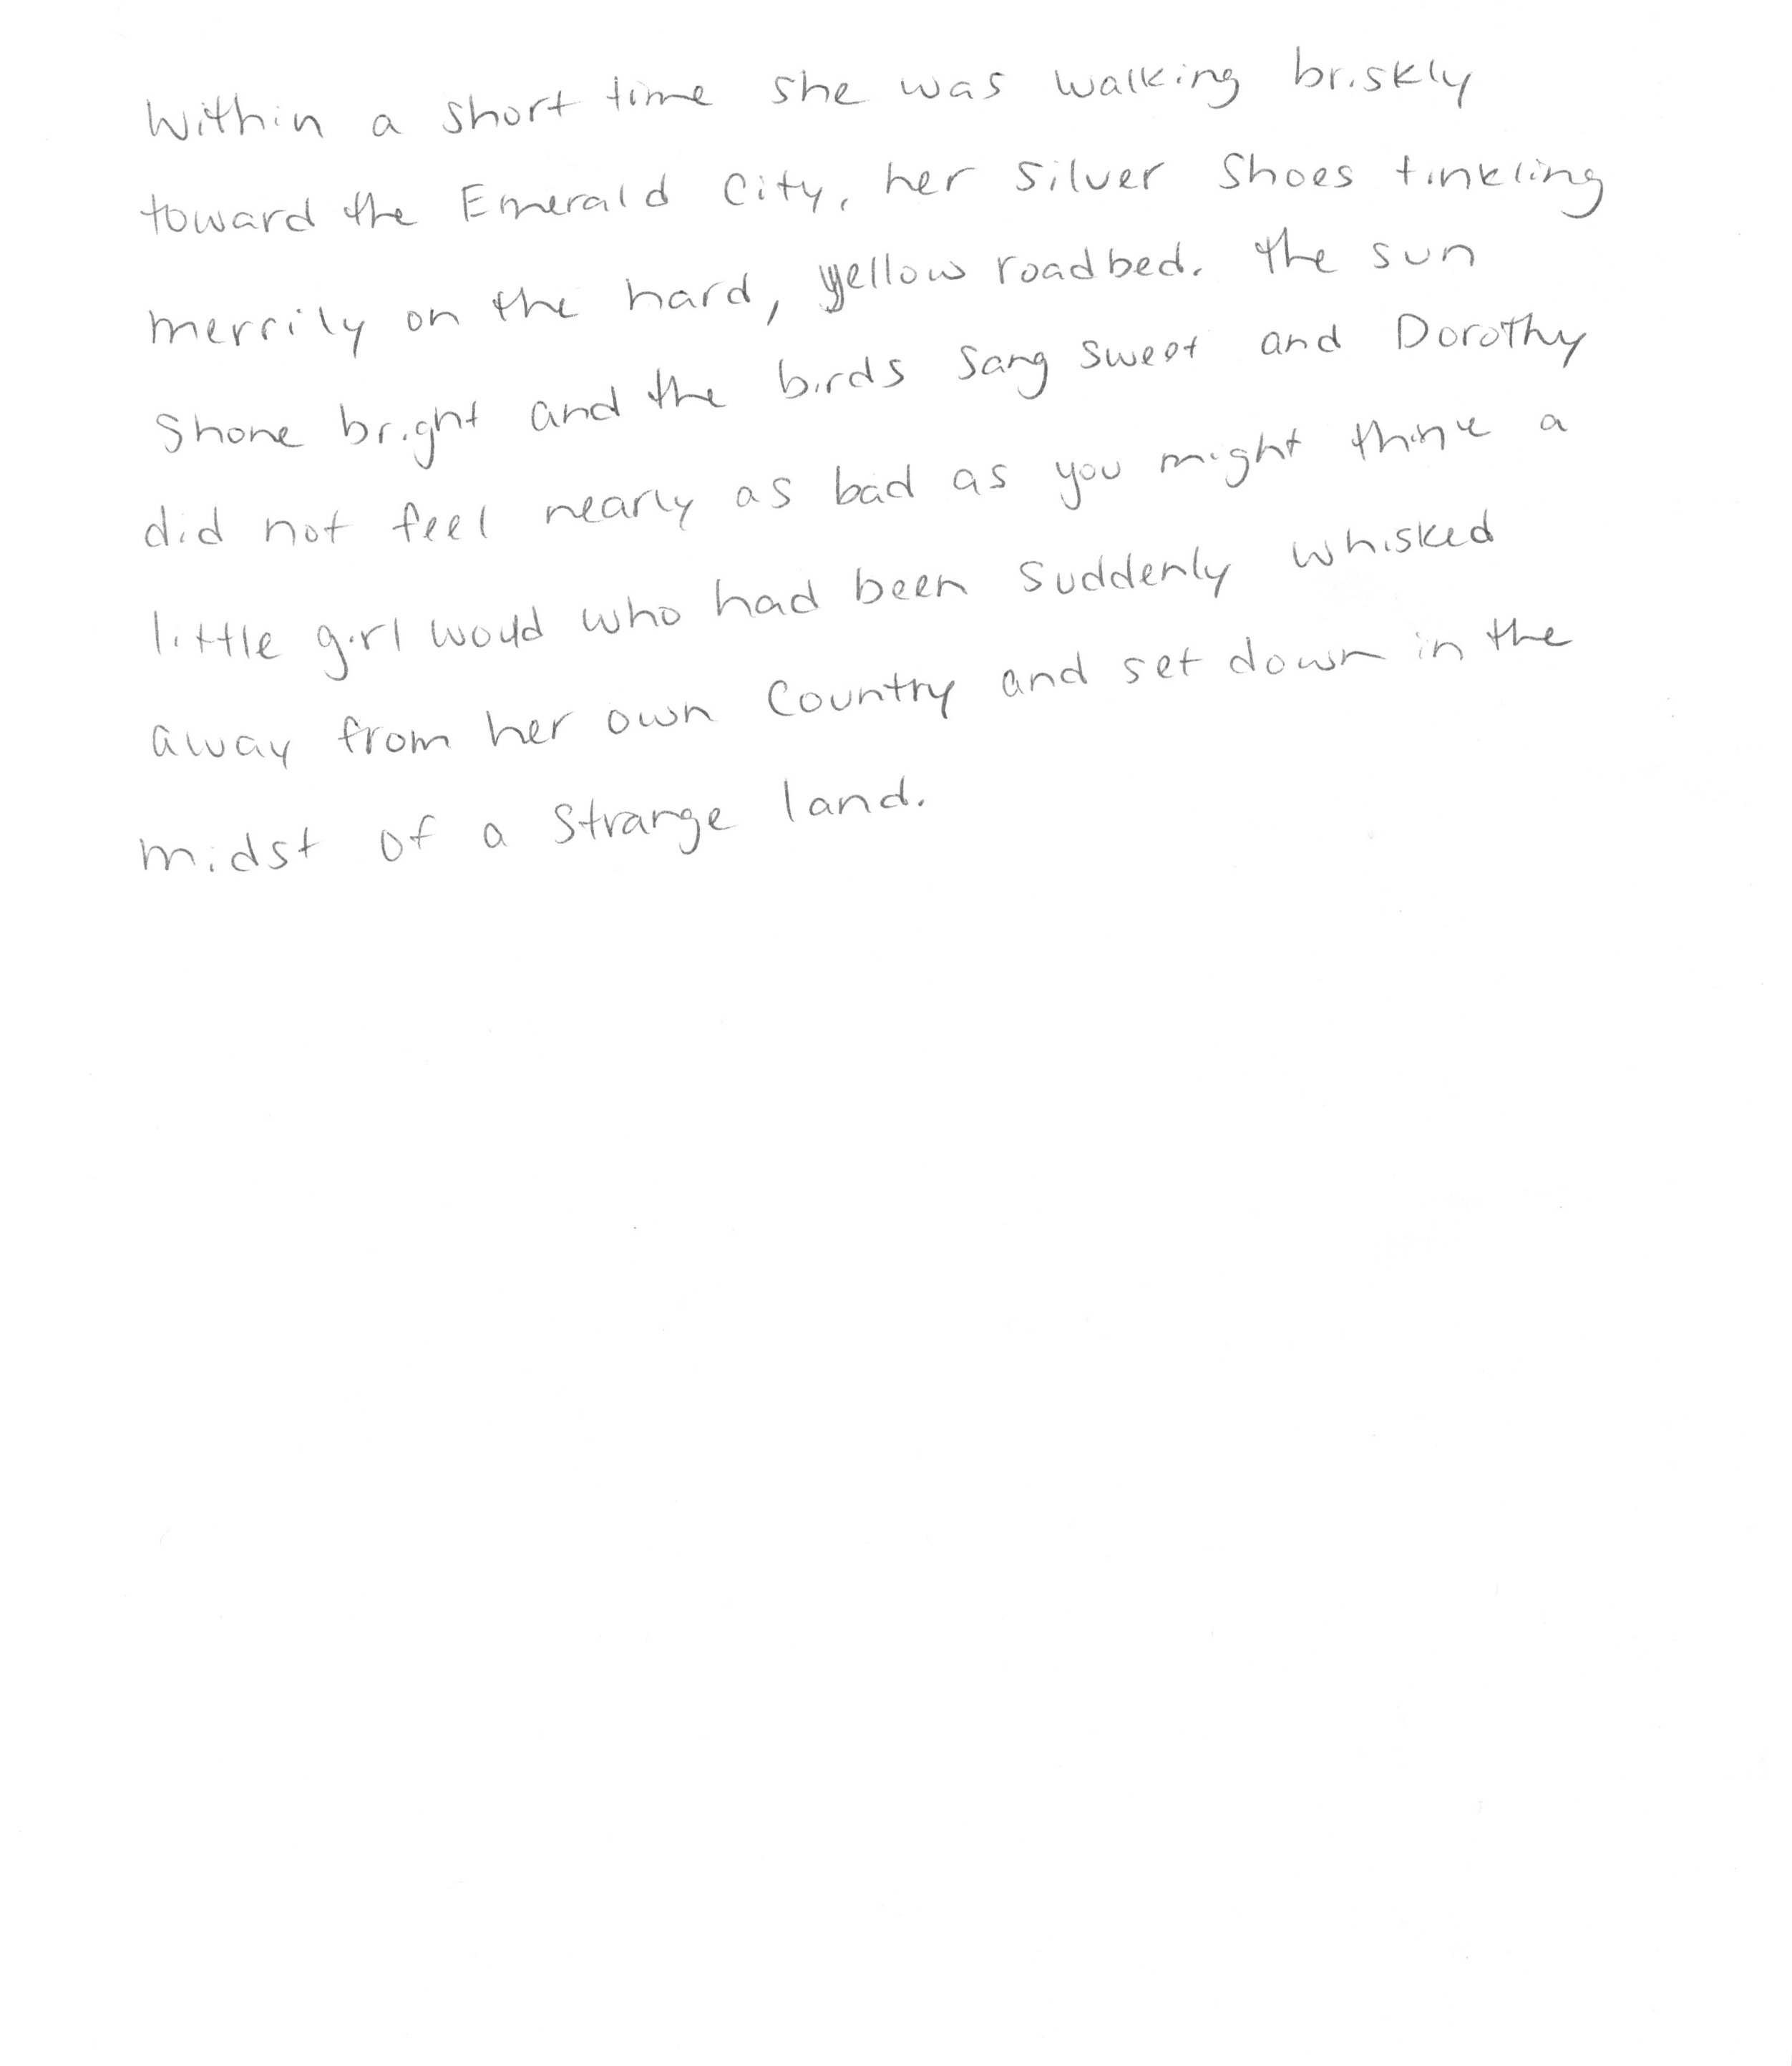 Within a short time she was walking briskly
toward the Emerald City, her Silver Shoes tinkling
merrily on the hard, yellow roadbed. The sun
shone bright and the birds sang sweet and Dorothy
did not feel nearly as bad as you might think a
little girl would who had been suddenly whisked
away from her own country and set down in the
midst of a strange land.